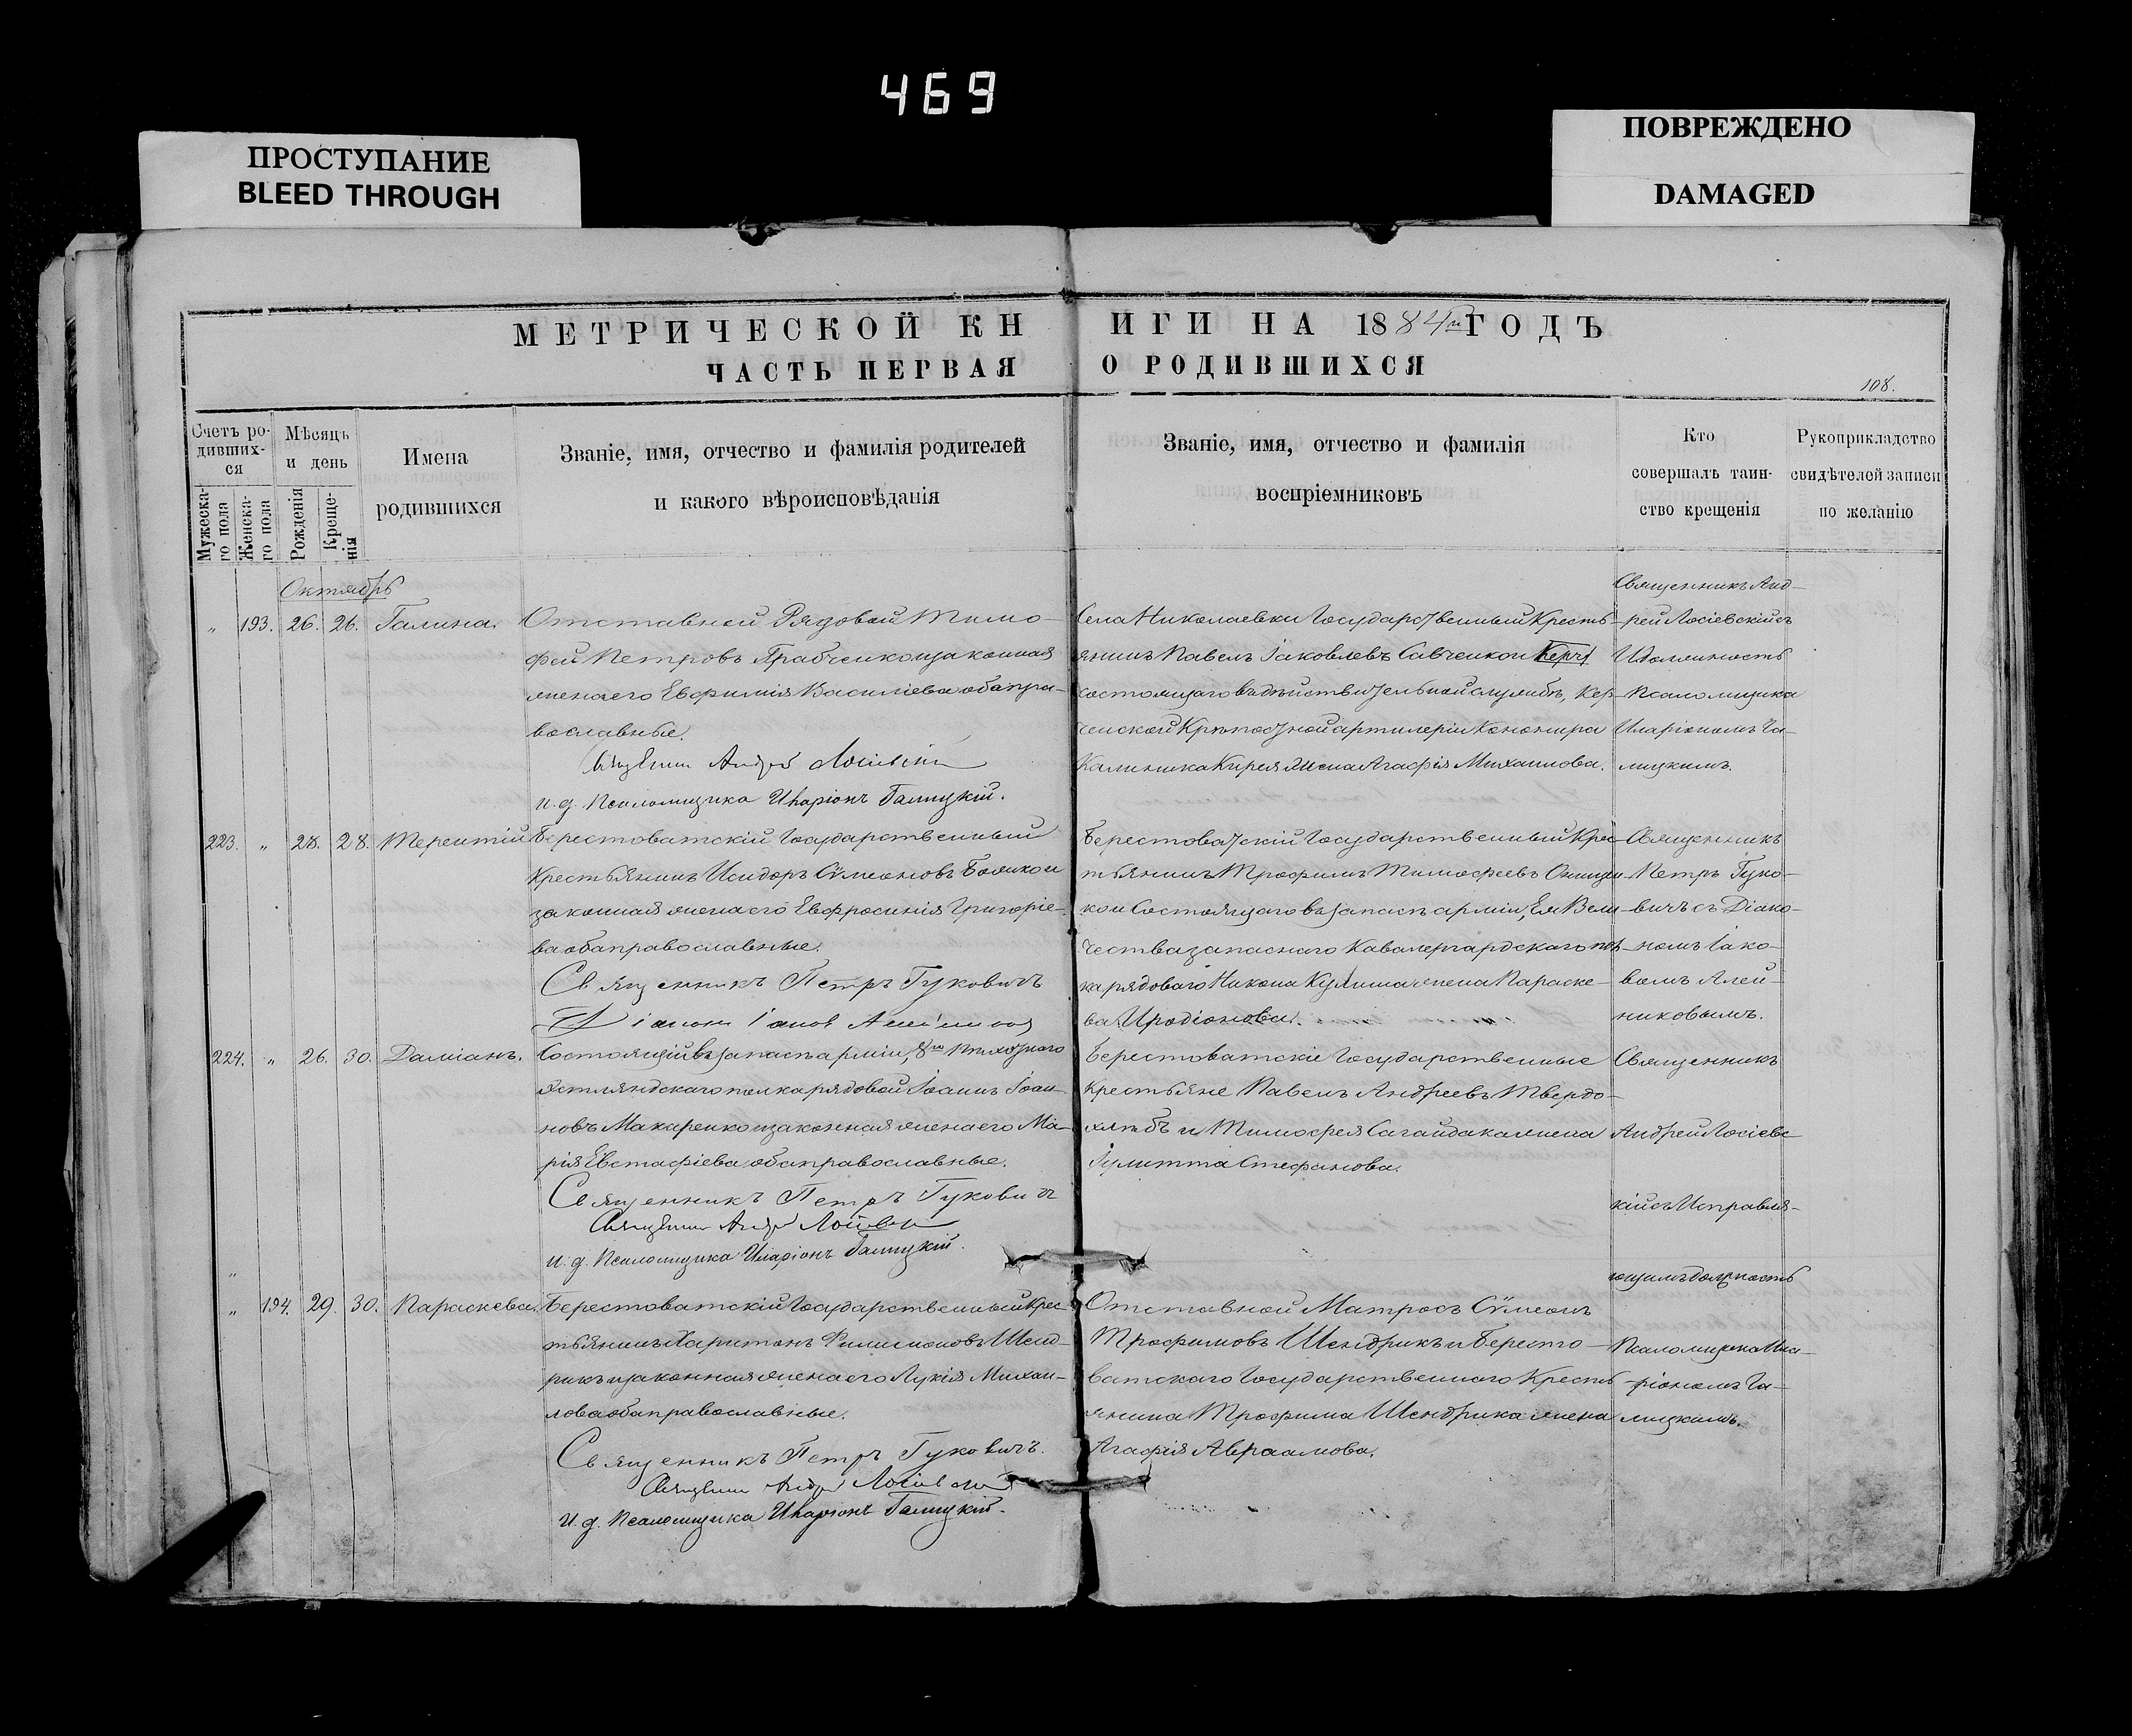 469
ПРОСТУПАНИЕ
BLEED THROUGH
ПОВРЕЖДЕНО
DAMAGED
МЕТРИЧЕСКОЙ КН
ИГИ НА 1884й ГОДЪ
ЧАСТЬ ПЕРВАЯ
О РОДИВШИХСЯ
108.
Счетъ ро-
дивших-
ся
Мужеска-
го пола
Женска-
го пола
Мѣсяцъ
и день
Рожденія
Креще-
нія
Имена
родившихся
Званіе, имя, отчество и фамилія родителей
и какого вѣроисповѣданія
Званіе, имя, отчество и фамилія
воспріемниковъ
Кто
совершалъ таин-
ство крещенія
Рукоприкладство
свидѣтелей записи
по желанію
Октябрь
" 193. 26. 26. Галина.
Отставной Рядовой Тимо-
фей Петровъ Грабченко и законная
жена его Евфимія Василіева оба пра-
вославные.
Священникъ Андрей Лосіевскій
и. д. Псаломщика Иларіонъ Галицкій.
Села Николаевки Государственный Кресть-
янинъ Павелъ Іаковлевъ Савченко и
состоящаго въ дѣйствительной службѣ, Кер-
ченской Крѣпостной артилеріи Канонира
Калиника Кирея жена Агафія Михаилова.
Священникъ Анд-
рей Лосіевскій съ
И. должность
Псаломщика
Иларіономъ Га-
лицкимъ.
223. " 28. 28. Терентій
Берестоватскій Государственный
Крестьянинъ Исидоръ Сѵмеоновъ Бойко и
законная жена его Евфросинія Григоріе-
ва оба православные.
Священникъ Петръ Гуковичъ
Діаконъ Іаковъ Алейниковъ
Берестоватскій Государственный Крес-
тьянинъ Трофимъ Тимофеевъ
ко и Состоящаго въ запасѣ арміи, Ея Вели-
чества запаснаго Кавалергардскаго пол-
ка рядоваго Никона Кулиша жена Параске-
ва Иродіонова.
Священникъ
Петръ Гуко-
вичъ съ Діако-
номъ Іако-
вомъ Алей-
никовымъ.
224. " 26. 30. Даміанъ.
Состоящій въ запасѣ арміи, 8го пѣхотнаго
Эстляндскаго полка рядовой Іоаннъ Іоан-
новъ Макаренко и законная жена его Ма-
рія Евстафіева, оба православные.
Священникъ Петръ Гуковичъ
Священникъ Андрей Лосіевскій
и. д. Псаломщика Иларіонъ Галицкій.
Берестоватскіе Государственные
крестьяне Павелъ Андреевъ Твердо-
хлѣбъ и Тимофея Сагайдака жена
Іулитта Стефанова.
Священникъ
Андрей Лосіевс-
кій съ Исправля-
ющимъ должность
"
" 194. 29. 30. Параскева.
Берестоватскій Государственный Крес-
тьянинъ Харитонъ Филимоновъ Шенд-
рикъ и законная жена его Лукія Михаи-
лова оба православные.
Священникъ Петръ Гуковичъ.
Священникъ Андрей Лосіевскій
и. д. Псаломщика Иларіонъ Галицкій.
Отставной Матросъ Сѵмеонъ
Трофимовъ Шендрикъ и Бересто-
ватскаго Государственнаго Кресть-
янина Трофима Шендрика жена
Агафія Авраамова.
Псаломщика Ила-
ріономъ Га-
лицкимъ.